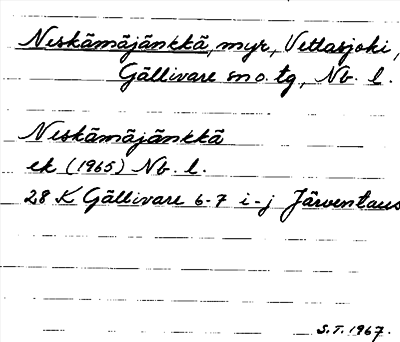 Neskämäjänkkä, myr, Vettasjoki,
Gällivare sn o. tg, Nb. l.
Neskämäjänkkä
ek (1965) Nb. l.
28 K Gällivare 6-7 i-j Järventaus
S.T. 1967.